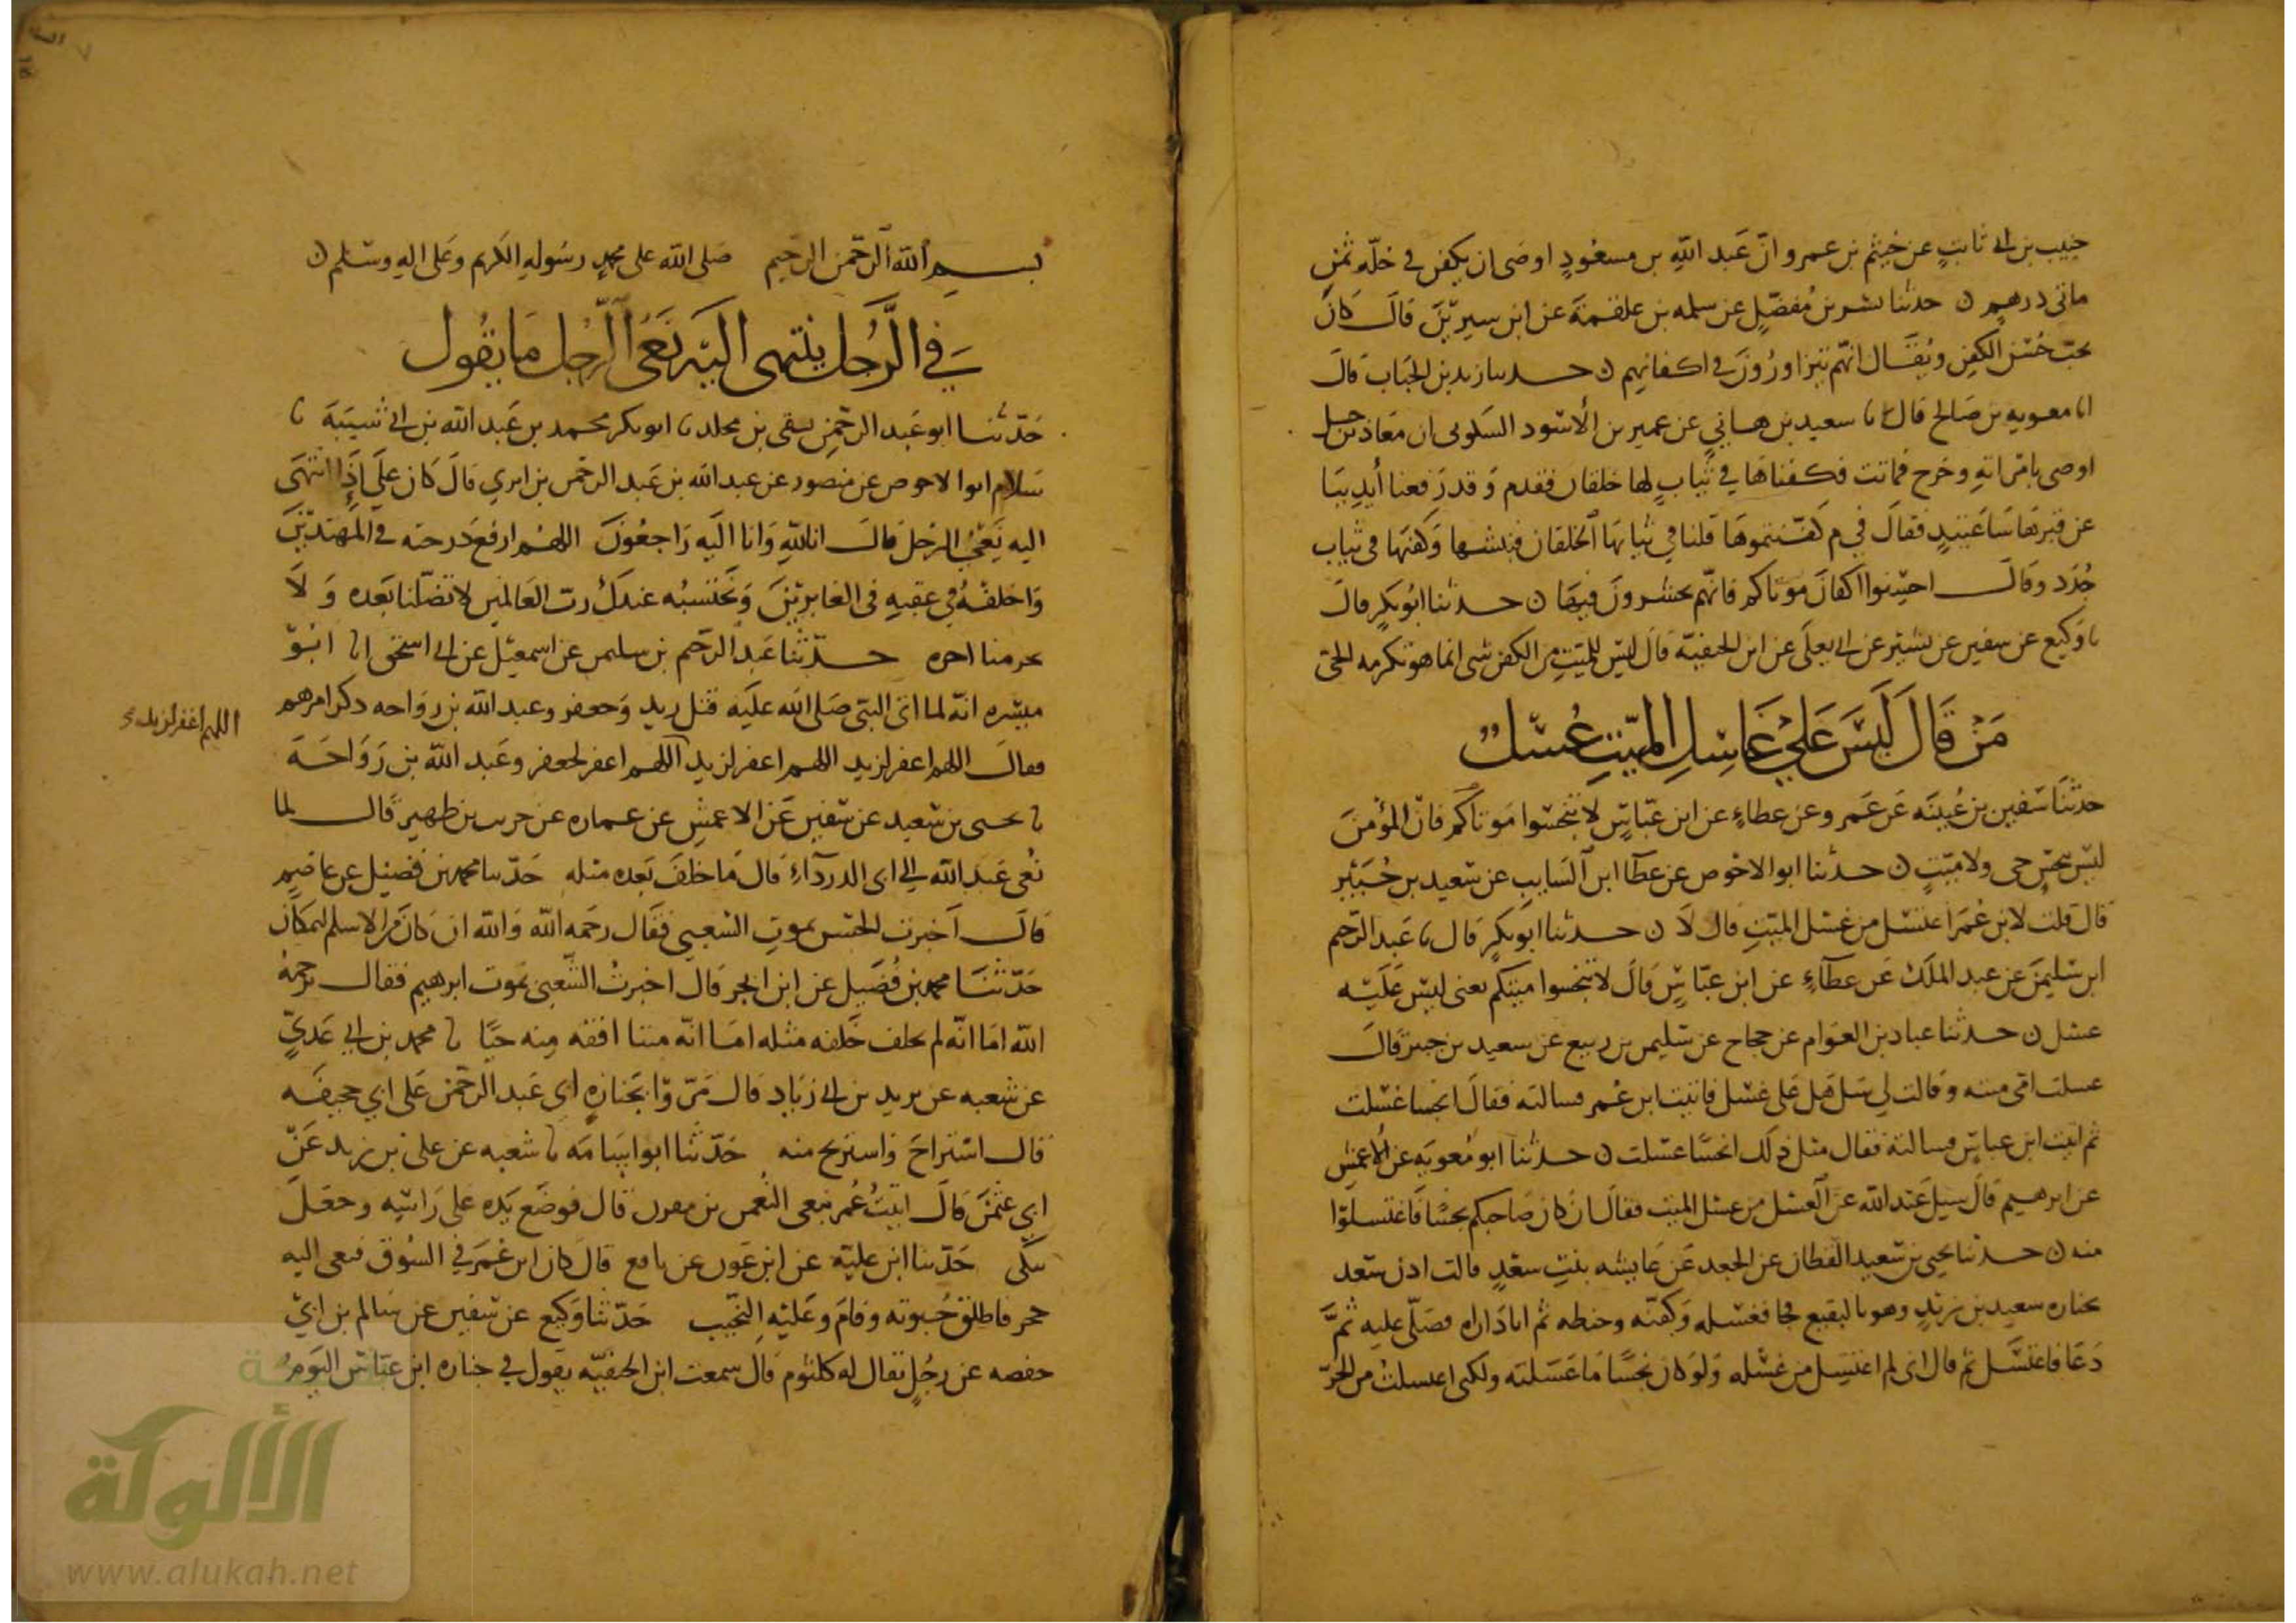 حبيب بن ابي ثابتٍ عن خيثم بن عمرو انّ عَبد اللهِ بن مسعُودٍ اوصَى ان يكفن في حُلّه ثمنِ
مائتى درهمٍ ن حدثنا بشر بن مُفضّلٍ عن سلمه بن علقمَة عن ابن سيرِين قالَ كانَ
يحبّ حُسْنَ الكفنِ ويُقَال انهّم يتزاورُونَ في اكفانهم ن حدثنا زيد بن الحُبَاب قالَ
انا معويه بن صَالح قال نا سعيد بن هاني عن عمير بن الأسْود السَكونى ان معَاذ بن جبل
اوصى بامْراتهِ وخرج فماتت فكفناهَا في ثيابٍ لها خلقان فقدم وَقد رَفعنا أيدِينا
عن قبرهَا سَاعَتيِذٍ فقالَ في مَ كَفّنتموهَا قلنا في ثيابهَا الخلقان فنبشها وَكفنها في ثيابٍ
جُدَد وقالَ احسِنوا اكفانَ موتاكم فانّهم يحشرونَ فيها ن حدثنا ابُو بَكرٍ قالَ
نا وَكيع عن سفين عن بشيرٍ عن ابي يعلَى عن ابن الحنفيّة قالَ ليسَ للميّتِ من الكفن شى انما هو تكرمه الحيّ
مَنْ قَالَ لَيْسَ عَلَى غَاسِلِ الميّتِ غُسْلٌ
حدثنَا سَفين بن عُيينَه عَن عَمرو عن عطاءٍ عن ابن عبّاسٍ لا تنجسّوا مَوتاكُم فانّ المؤْمنَ
ليسَ بنجسٍ حى ولا ميّتٍ ن حدثنا ابو الاحْوص عن عطا ابن السَايب عن سَعيد بن جُبَيْر
قال قلت لابن عُمَرَ اغتسل من غسْل الميّتِ قال لاَ ن حدثنا ابُو بكرٍ قال نا عَبد الرّحيم
ابن سُليمنَ عن عبد الملك عَن عطآءٍ عن ابن عبّاسٍ قالَ لا تنجسوا ميتكم يعنى ليسَ عَلَيْه
غسل ن حدثنا عباد بن العوّام عن حجاح عن سُليمن بن ربيع عن سعيد بن جبير قالَ
غسلت امّى ميته وَقالت لي سَل هَل عَلى غسْل فاتيت ابن عُمر فسالته فقالَ انجسا غسْلت
ثم اتيت ابن عباسٍ فسالته فقال مثل ذلك انجسًا غسلت ن حدثنا ابو مُعويَه عن الاعمَشِ
عن ابرهيم قالَ سيل عَبد اللّه عن الغسْل من غسْل الميّت فقالَ ان كانَ صَاحبكم نجسًا فَاغتسِلوا
منه ن حدثنا يحيى بن سَعيد القطان عن الجعد عَن عَايشه بنتِ سعْدٍ قالت اوذن سَعد
بجنازه سعيد بن زيدٍ وهو بالبقيع فجا فغسْله وَكفنّه وحنطه ثم اتا دَاره فصَلّى عليه ثمَّ
دَعَا فاغتسَل ثم قال انى لم اغتسِل من غسْله وَلو كان نجسًا مَا غسّلته ولكنى اغتسلتُ من الحَرّ
بسم الله الرّحمن الرحيم صَلى الله على محمدٍ رسُوله الكَريم وعَلى اله وسَلم ن
في الرَّجُل ينتهى اليَه نَعَى الرَّجُل مَا يقُول
حَدّثنا ابو عَبد الرحمَنِ بقى بن مخلد نا ابو بكر محمد بن عَبد الله بن ابي شيبَةَ نا
سَلام ابو الاحوص عن منصور عن عبد الله بن عَبد الرحمن بن ابزي قالَ كَان علَى اذَا انتهَى
اليه نَعْىُ الرَجل قالَ انا للهِ وَانا اليَه رَاجعُونَ اللهُم ارفع دَرجته في المهتديْنَ
وَاخلفهُ في عقبهِ في الغابريْنَ وَنحتسبُه عندكَ رب العَالمين لا تضلّنا بَعده وَلاَ
تحرمنا اجره حدّثنا عَبد الرّحيم بن سليمن عن اسمعيْل عن ابي اسحَق انا ابُو
ميسَره انّه لما اتى النبىّ صَلى الله عليَه قتل زيد وَجعفر وعبد الله بن رواحه ذكر امرهم
فقالَ اللهم اغفر لزيد اللهم اغفر لزيد اللهم اغفر لجعفر وعَبد الله بن رَوَاحَةَ
اللهم اغفر لزيد
نا يحيى بن سَعيد عن سَفين عَن الاعمَشِ عن عماره عن حرب بن ظهير قال لما
نُعىَ عَبد الله الى ابى الدردآءِ قال مَا خلفَ بَعده مثله حَدّثنا محمد بن فُضيْل عن عاصِمٍ
قالَ اَخبرت الحسَن بموتِ الشعبي فقَال رحمَه اللهّ وَالله ان كانَ من الاسلم لبمكانٍ
حَدّثنَا محمد بن فُضَيل عن ابن ابجر قال اخبرتُ الشّعبى بموت ابرهيم فقال رحمهُ
الله امَا انّه لم يخلف خَلفه مثله امَا انّه ميتا افقه مِنه حيًّا نا محمد بن ابي عَديٍّ
عن شعبه عن يزيد بن ابي زيَادٍ قال مَرّوا بجنازهِ ابى عَبد الرحمن عَلى ابي جحيفَه
قال اسْتراحَ وَاستريح منه حَدّثنا ابو اسَامَه نا شعبه عن على بن زيد عَن
ابي عثمَنَ قالَ اتيتُ عُمر بنعى النعمن بن مقرن قال فوضَع يَده على رَاسِه وجعَلَ
يبكى حَدّثنا ابن عليّة عن ابن عَون عن نافع قالَ كان ابن عُمَر في السُوق فنعى اليه
حجر فاطلق حُبوته وقامَ وعَليْه النحّيب حَدّثنا وَكيع عن سَفين عن سَالم بن ابي
حفصه عن رجُلٍ يقال له كلثوم قال سمعت ابن الحنفيّه يقول في جنازه ابن عبّاسٍ اليَومَ
الألوكة
www.alukah.net